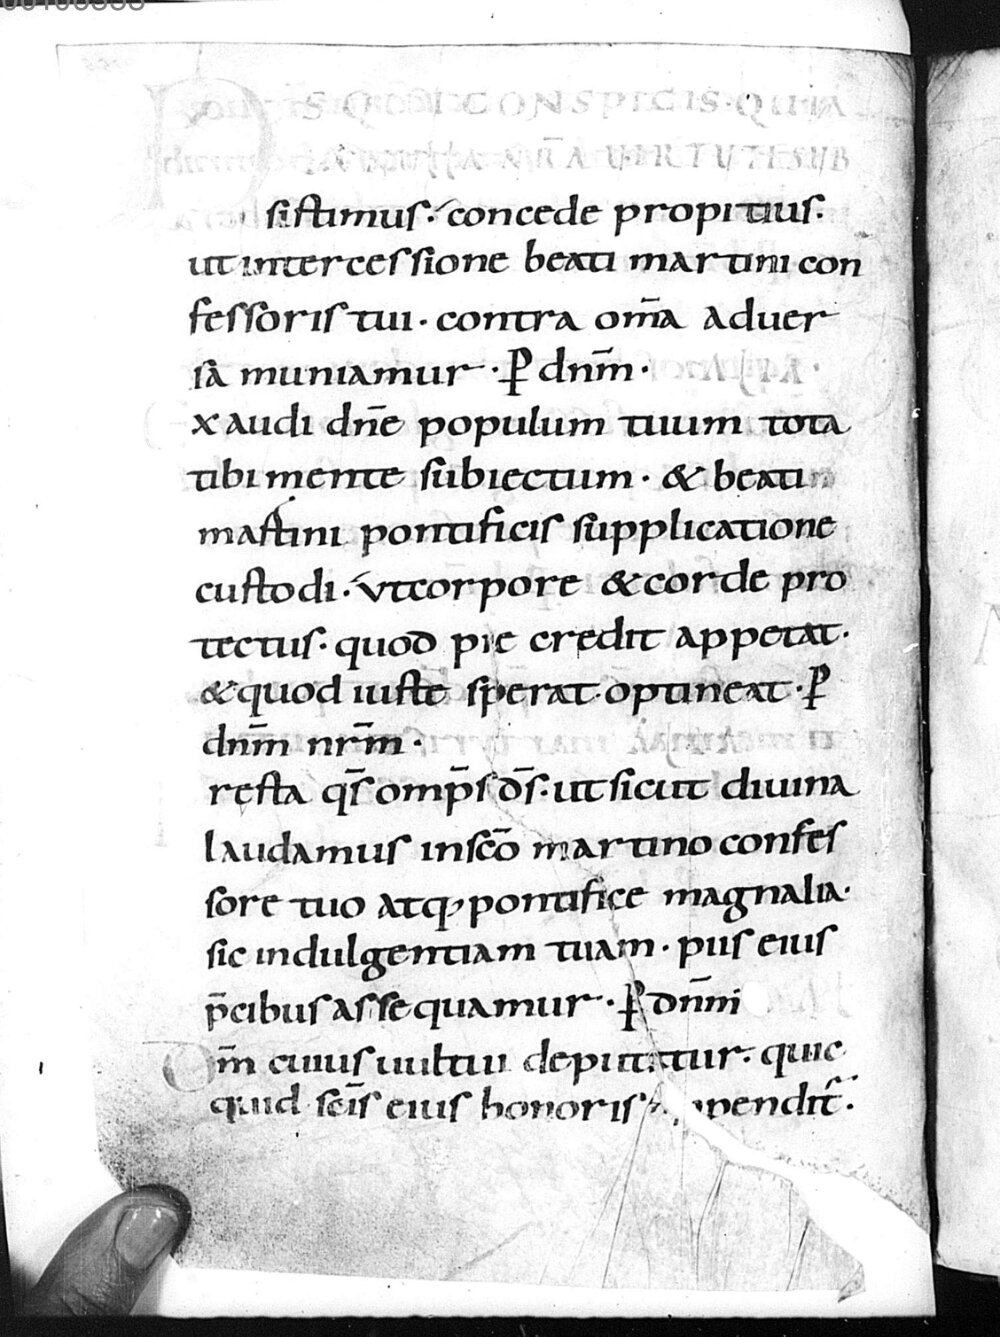 DS QUI CONSPICIS·QUIA
NRA UIRTUTE SUB
sistimus· concede propitius·
ut intercessione beati martini con
fessoris tui· contra om̄a aduer
sa muniamur·P dn̄m·
xaudi dn̄e populum tuum tota
tibi mente subiectum· & beati
martini pontificis supplicatione
custodi· vt corpore & corde pro
tectus· quod pie credit appetat·
& quod iuste sperat· optineat·P
dn̄m nr̄m·
ręsta qs̄ omp̄s ds̄· ut sicut diuina
laudamus in sc̄o martino confes
sore tuo atq; pontifice magnalia·
sic indulgentiam tuam· piis eius
p̄cibus assequamur· P dn̄m
Om̄ cuius uultui deputatur· quic
quid sc̄is eius honoris pendit̄·